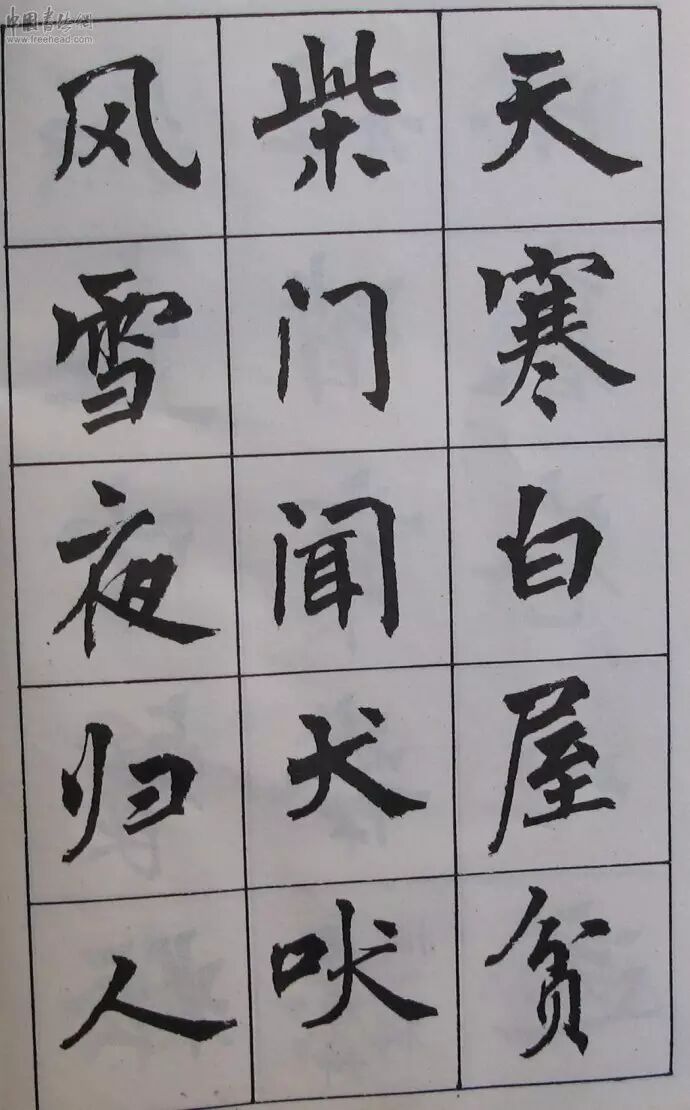 中国书法网
www.freehead.com
天寒白屋贫
柴门闻犬吠
风雪夜归人